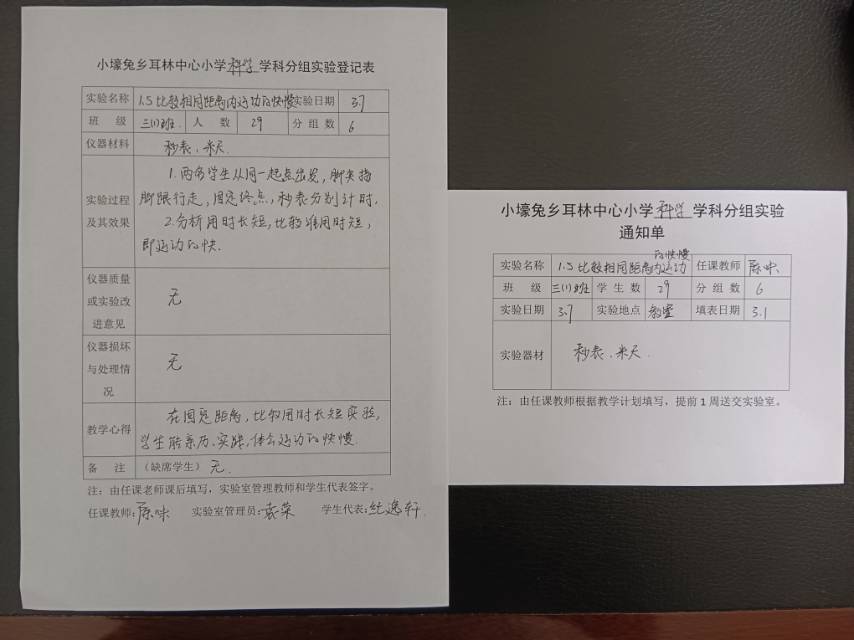 小壕兔乡耳林中心小学科学学科分组实验登记表
实验名称 1.5比较相同距离内运动的快慢 实验日期 3.7
班 级 三(1)班 人 数 29 分组数 6
仪器材料 秒表、米尺
实验过程及其效果
1.两名学生从同一起点出发,脚尖指
脚跟行走,固定终点,秒表分别计时.
2.分析用时长短,比较谁用时短,
即运动的快.
仪器质量或实验改进意见 无
仪器损坏与处理情况 无
教学心得
在固定距离,比较用时长短实验,
学生能亲历、实践,体会运动的快慢.
备 注 (缺席学生) 无.
注:由任课老师课后填写,实验室管理教师和学生代表签字。
任课教师: 实验室管理员: 学生代表:
小壕兔乡耳林中心小学科学学科分组实验
通知单
实验名称 1.5比较相同距离内运动的快慢 任课教师
班 级 三(1)班 学生数 29 分组数 6
实验日期 3.7 实验地点 教室 填表日期 3.1
实验器材 秒表、米尺.
注:由任课教师根据教学计划填写,提前1周送交实验室。